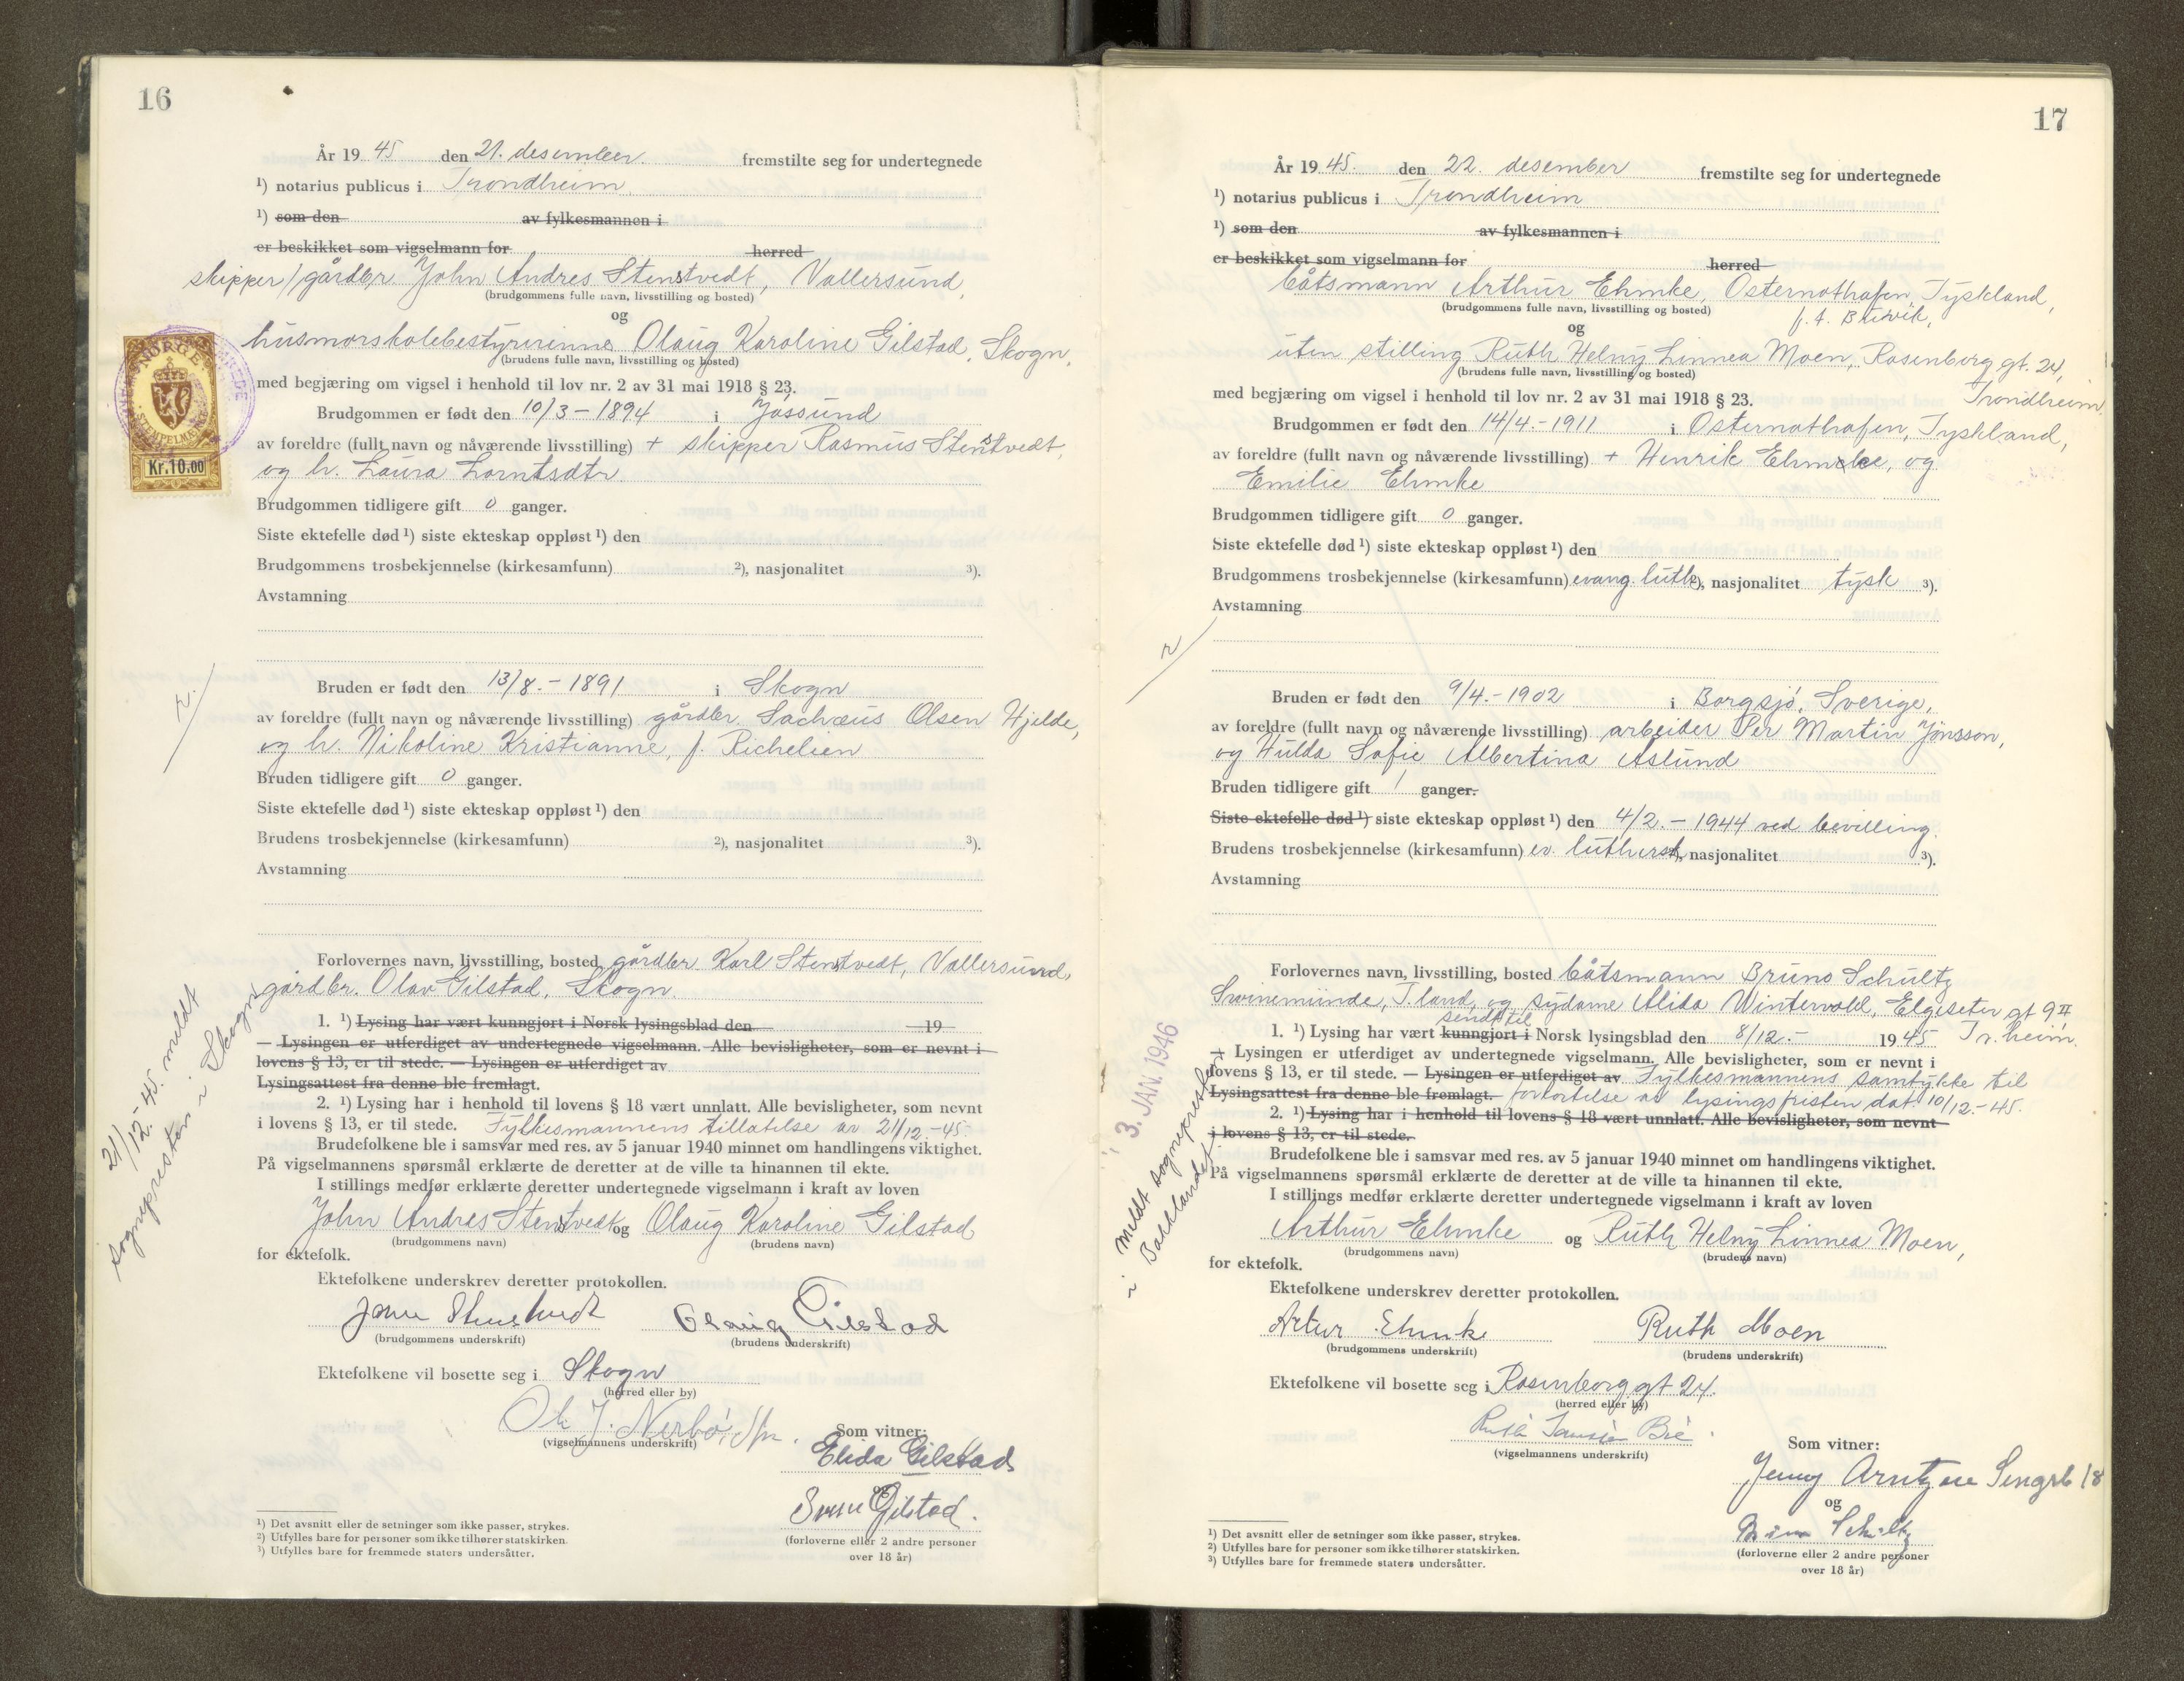 16
År 19 45 den 21. desember fremstilte seg for undertegnede
¹) notarius publicus i Trondheim
¹) som den av fylkesmannen i
er beskikket som vigselmann for herred
skipper/gårdbr. John Andres Stenstvedt, Vallersund,
(brudgommens fulle navn, livsstilling og bosted)
og
husmorskolebestyrerinne Olaug Karoline Gilstad, Skogn,
(brudens fulle navn, livsstilling og bosted)
NORGE
STEMPELMERKE
Kr.10.00
med begjæring om vigsel i henhold til lov nr. 2 av 31 mai 1918 § 23.
Brudgommen er født den 10/3 - 1894 i Jøssund
av foreldre (fullt navn og nåværende livsstilling) + skipper Rasmus Stenstvedt,
og h. Laura Lorntsdtr.
Brudgommen tidligere gift 0 ganger.
Siste ektefelle død ¹) siste ekteskap oppløst ¹) den
Brudgommens trosbekjennelse (kirkesamfunn) ²), nasjonalitet ³).
Avstamning
Bruden er født den 13/8. - 1891 i Skogn
av foreldre (fullt navn og nåværende livsstilling) gårdbr. Sachæus Olsen Hjelde,
og h. Nikoline Kristianne, f. Richelien
Bruden tidligere gift 0 ganger.
Siste ektefelle død ¹) siste ekteskap oppløst ¹) den
Brudens trosbekjennelse (kirkesamfunn) ²), nasjonalitet ³).
Avstamning
Forlovernes navn, livsstilling, bosted gårdbr Karl Stenstvedt, Vallersund,
gårdbr. Olav Gilstad, Skogn.
1. ¹) Lysing har vært kunngjort i Norsk lysingsblad den 19
— Lysingen er utferdiget av undertegnede vigselmann. Alle bevisligheter, som er nevnt i
lovens § 13, er til stede. — Lysingen er utferdiget av
Lysingsattest fra denne ble fremlagt.
2. ¹) Lysing har i henhold til lovens § 18 vært unnlatt. Alle bevisligheter, som nevnt
i lovens § 13, er til stede. Fylkesmannens tillatelse av 21/12.-45.
Brudefolkene ble i samsvar med res. av 5 januar 1940 minnet om handlingens viktighet.
På vigselmannens spørsmål erklærte de deretter at de ville ta hinannen til ekte.
I stillings medfør erklærte deretter undertegnede vigselmann i kraft av loven
John Andres Stenstvedt og Olaug Karoline Gilstad
(brudgommens navn) (brudens navn)
for ektefolk.
21/12.-45. meldt
sognepresten i Skogn
Ektefolkene underskrev deretter protokollen.
Olaug Gilstad
(brudgommens underskrift) (brudens underskrift)
Ektefolkene vil bosette seg i Skogn
(herred eller by)
(vigselmannens underskrift)
Som vitner:
Elida Gilstad
og
Gilstad.
(forloverne eller 2 andre personer
over 18 år)
¹) Det avsnitt eller de setninger som ikke passer, strykes.
²) Utfylles bare for personer som ikke tilhører statskirken.
³) Utfylles bare for fremmede staters undersåtter.
17
År 19 45. den 22. desember fremstilte seg for undertegnede
¹) notarius publicus i Trondheim
¹) som den av fylkesmannen i
er beskikket som vigselmann for herred
båtsmann Arthur Ehmke, Osternothafen, Tyskland,
(brudgommens fulle navn, livsstilling og bosted)
og
uten stilling Ruth Helny Linnea Moen, Rosenborg gt. 24,
(brudens fulle navn, livsstilling og bosted)
med begjæring om vigsel i henhold til lov nr. 2 av 31 mai 1918 § 23. Trondheim.
Brudgommen er født den 14/4. - 1911 i Osternothafen, Tyskland,
av foreldre (fullt navn og nåværende livsstilling) + Henrik Ehmke, og
Emilie Ehmke
Brudgommen tidligere gift 0 ganger.
Siste ektefelle død ¹) siste ekteskap oppløst ¹) den
Brudgommens trosbekjennelse (kirkesamfunn) evang. luth. ²), nasjonalitet tysk ³).
Avstamning
Bruden er født den 9/4. - 1902 i Borgsjö, Sverige,
av foreldre (fullt navn og nåværende livsstilling) arbeider Per Martin Jönsson,
og Hulda Sofie Albertina Aslund
Bruden tidligere gift 1 ganger.
Siste ektefelle død ¹) siste ekteskap oppløst ¹) den 4/2. - 1944 ved bevilling.
Brudens trosbekjennelse (kirkesamfunn) ev. luthersk, nasjonalitet ³).
Avstamning
Forlovernes navn, livsstilling, bosted båtsmann Bruno Schultz
Swinemünde, T.land, og sydame Alida Wintervold, Elgeseter gt 9 II
sendt til
1. ¹) Lysing har vært kunngjort i Norsk lysingsblad den 8/12. - 1945 Tr.heim.
— Lysingen er utferdiget av undertegnede vigselmann. Alle bevisligheter, som er nevnt i
lovens § 13, er til stede. — Lysingen er utferdiget av Fylkesmannens samtykke til
Lysingsattest fra denne ble fremlagt. forkortelse av lysingsfristen dat. 10/12.-45.
2. ¹) Lysing har i henhold til lovens § 18 vært unnlatt. Alle bevisligheter, som nevnt
i lovens § 13, er til stede.
Brudefolkene ble i samsvar med res. av 5 januar 1940 minnet om handlingens viktighet.
På vigselmannens spørsmål erklærte de deretter at de ville ta hinannen til ekte.
I stillings medfør erklærte deretter undertegnede vigselmann i kraft av loven
Arthur Ehmke og Ruth Helny Linnea Moen,
(brudgommens navn) (brudens navn)
for ektefolk.
3. JAN. 1946
meldt sogneprest
i Bakklandet
Ektefolkene underskrev deretter protokollen.
Artur Ehmke Ruth Moen
(brudgommens underskrift) (brudens underskrift)
Ektefolkene vil bosette seg i Rosenborg gt 24.
(herred eller by)
(vigselmannens underskrift)
Som vitner:
Jenny Arntzen
og
Schultz
(forloverne eller 2 andre personer
over 18 år)
¹) Det avsnitt eller de setninger som ikke passer, strykes.
²) Utfylles bare for personer som ikke tilhører statskirken.
³) Utfylles bare for fremmede staters undersåtter.